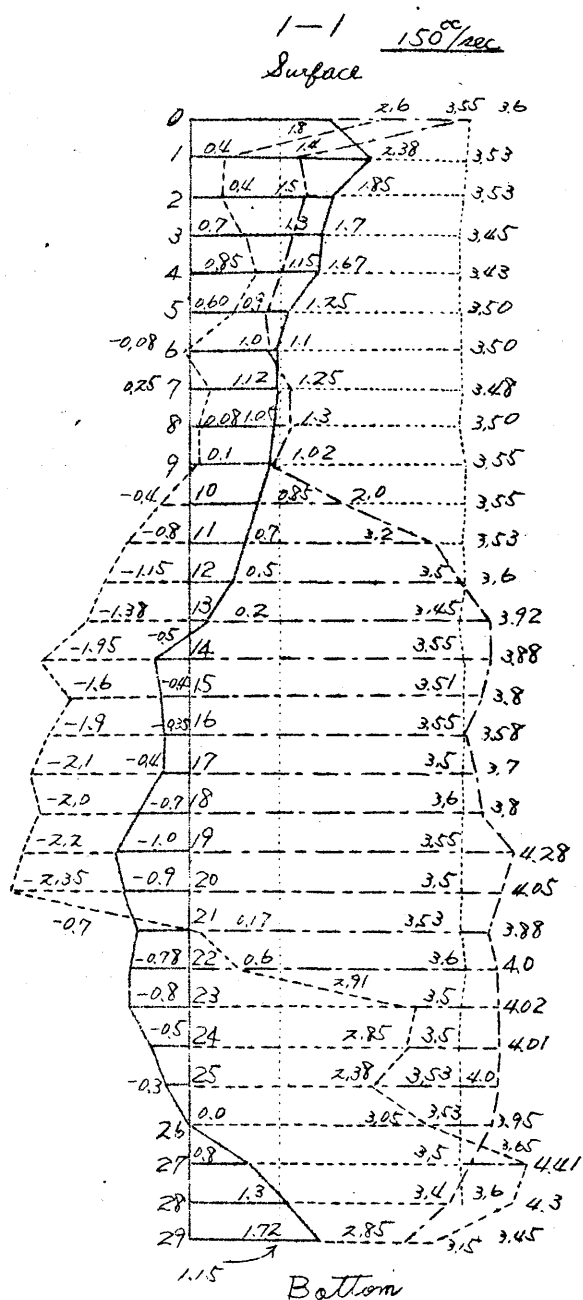 1-1 150cc/sec
Surface
0 2.6 3.55 3.6
1.8
1 0.4 1.4 2.38 3.53
2 0.4 1.5 1.85 3.53
3 0.7 1.3 1.7 3.45
4 0.85 1.15 1.67 3.43
5 0.60 0.9 1.25 3.50
-0.08 6 1.0 1.1 3.50
0.25 7 1.12 1.25 3.48
8 0.08 1.05 1.3 3.50
9 0.1 1.02 3.55
-0.4 10 0.85 2.0 3.55
-0.8 11 0.7 3.2 3.53
-1.15 12 0.5 3.5 3.6
-1.38 13 0.2 3.45 3.92
-1.95 -0.5 14 3.55 3.88
-1.6 -0.4 15 3.51 3.8
-1.9 -0.35 16 3.55 3.58
-2.1 -0.4 17 3.5 3.7
-2.0 -0.7 18 3.6 3.8
-2.2 -1.0 19 3.55 4.28
-2.35 -0.9 20 3.5 4.05
-0.7 21 0.17 3.53 3.88
-0.78 22 0.6 3.6 4.0
-0.8 23 2.91 3.5 4.02
-0.5 24 2.85 3.5 4.01
-0.3 25 2.38 3.53 4.0
26 0.0 3.05 3.53 3.95
27 0.8 3.5 3.65 4.41
28 1.3 3.4 3.6 4.3
29 1.72 2.85 3.15 3.45
1.15
Bottom